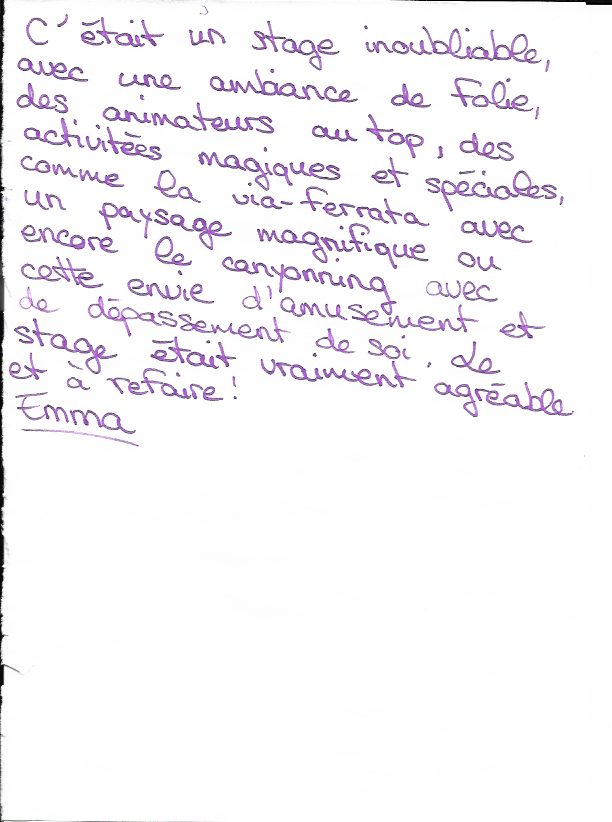 C'était un stage inoubliable,
avec une ambiance de folie,
des animateurs au top, des
activitées magiques et spéciales,
comme la via-ferrata avec
un paysage magnifique ou
encore le canyonning avec
cette envie d'amusement et
de dépassement de soi. Le
stage était vraiment agréable
et à refaire!
Emma